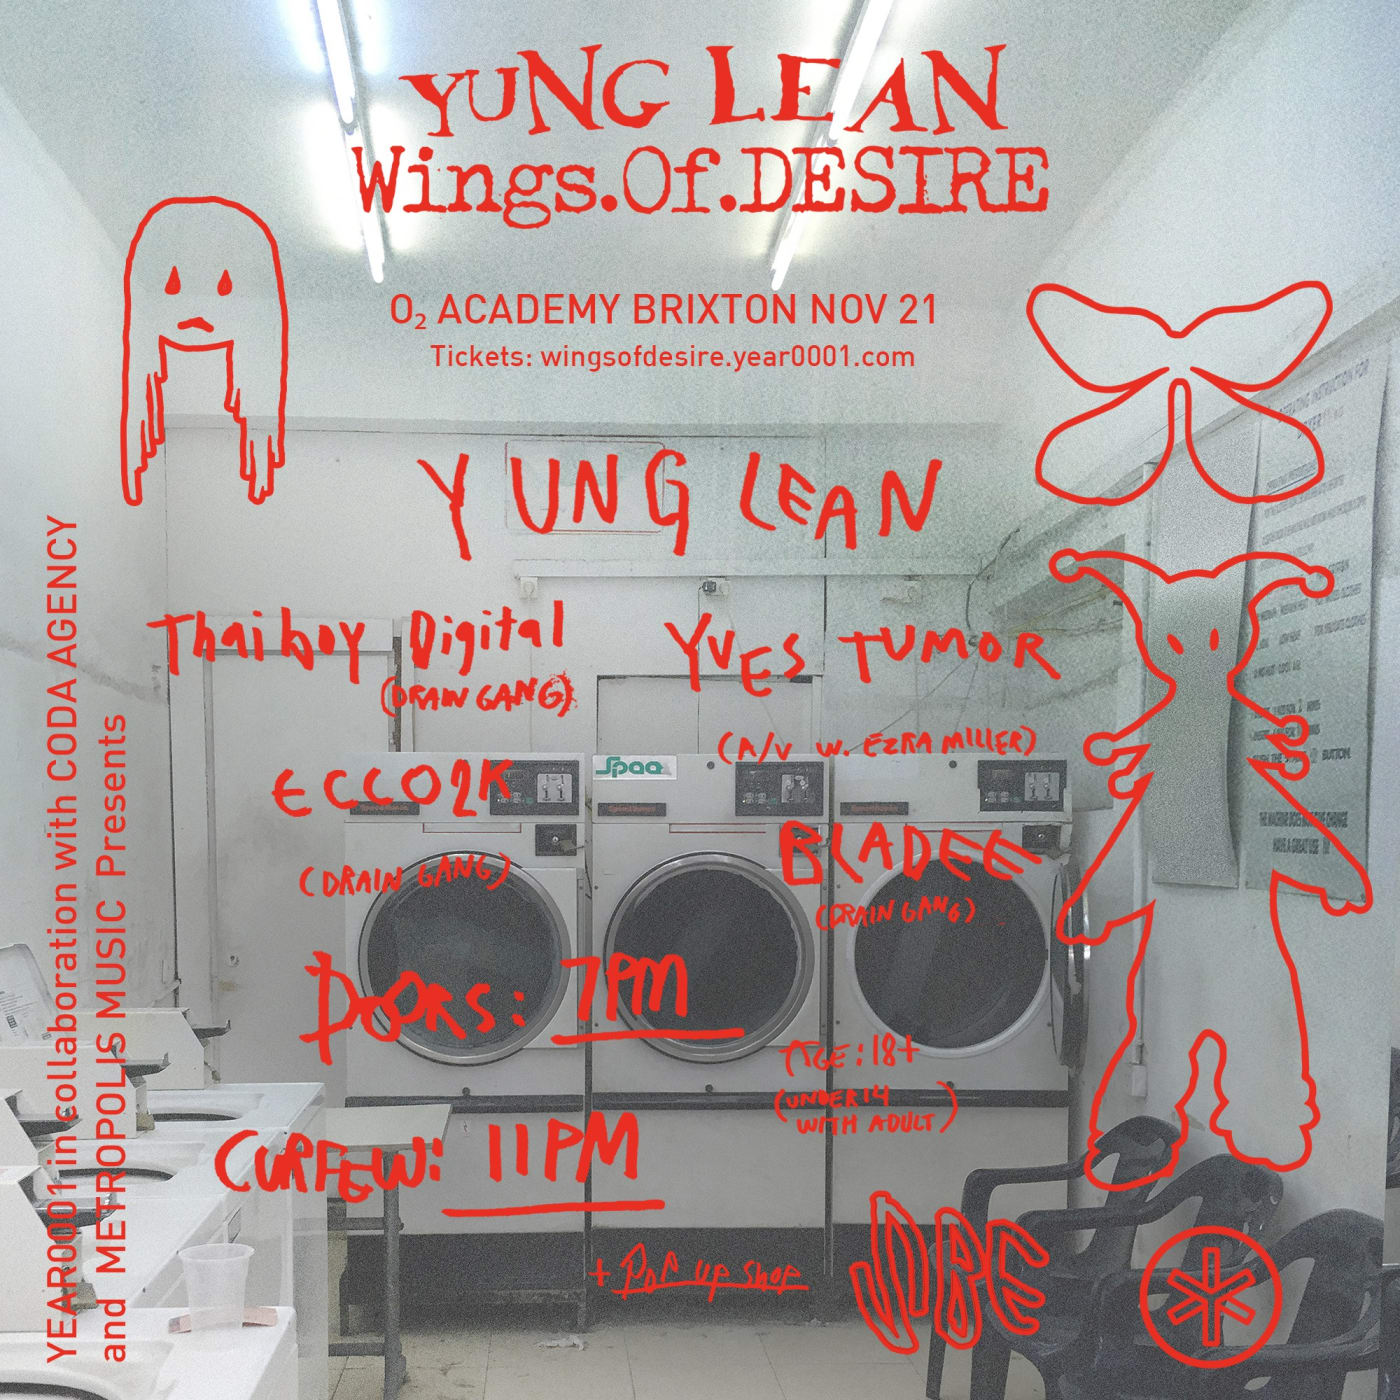 YUNG LEAN
Wings.Of.DESIRE
O₂ ACADEMY BRIXTON NOV 21
Tickets: wingsofdesire.year0001.com
YUNG LEAN
Thaiboy Digital
(DRAIN GANG)
YVES TUMOR
(A/V W. EZRA MILLER)
ECCO2K
(DRAIN GANG)
BLADEE
(DRAIN GANG)
DOORS: 7PM
AGE: 18+
(UNDER 14
WITH ADULT)
CURFEW: 11PM
+ POP UP SHOP
YEAR0001 in collaboration with CODA AGENCY
and METROPOLIS MUSIC Presents
Spaa
OPERATING INSTRUCTION FOR